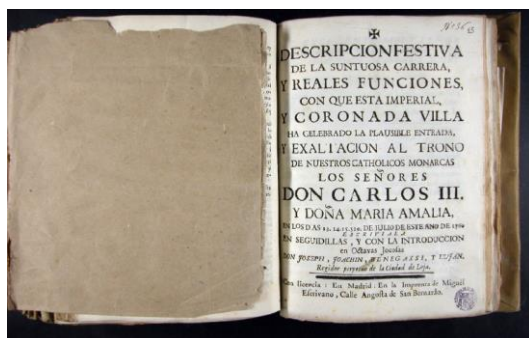 ✠
DESCRIPCION FESTIVA
DE LA SUNTUOSA CARRERA,
Y REALES FUNCIONES,
CON QUE ESTA IMPERIAL,
Y CORONADA VILLA
HA CELEBRADO LA PLAUSIBLE ENTRADA,
Y EXALTACION AL TRONO
DE NUESTROS CATHOLICOS MONARCAS
LOS SEÑORES
DON CARLOS III.
Y DOÑA MARIA AMALIA,
EN LOS DIAS 13. 14. 15. DE JULIO DE ESTE AÑO DE 1760
ESCRIVIALA
EN SEGUIDILLAS, Y CON LA INTRODUCCION
en Octavas Jocosas
DON JOSEPH, JOACHIN, BENEGASSI, Y LUJAN,
Regidor perpetuo de la Ciudad de Loja.
Con licencia: En Madrid: En la Imprenta de Miguel
Escrivano, Calle Angosta de San Bernardo.